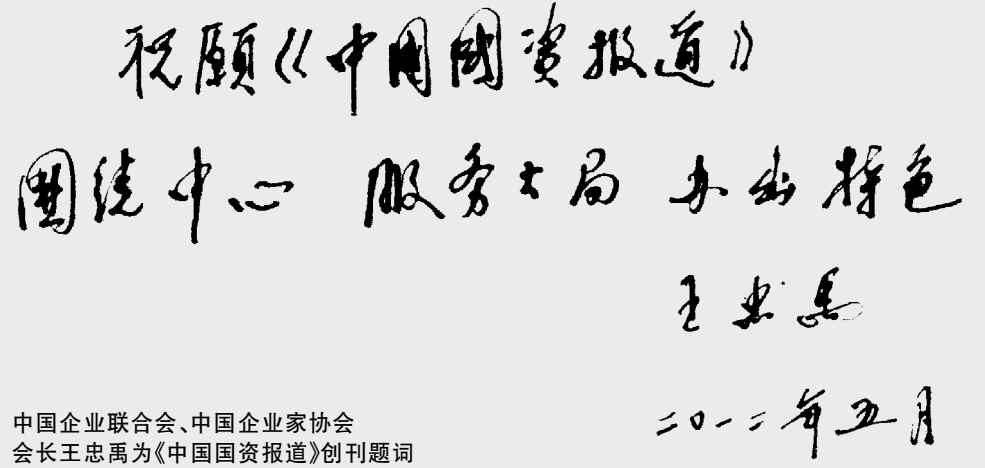 祝願《中國國资报道》
围绕中心 服务大局 办出特色
王忠禹
二〇一二年五月
中国企业联合会、中国企业家协会
会长王忠禹为《中国国资报道》创刊题词